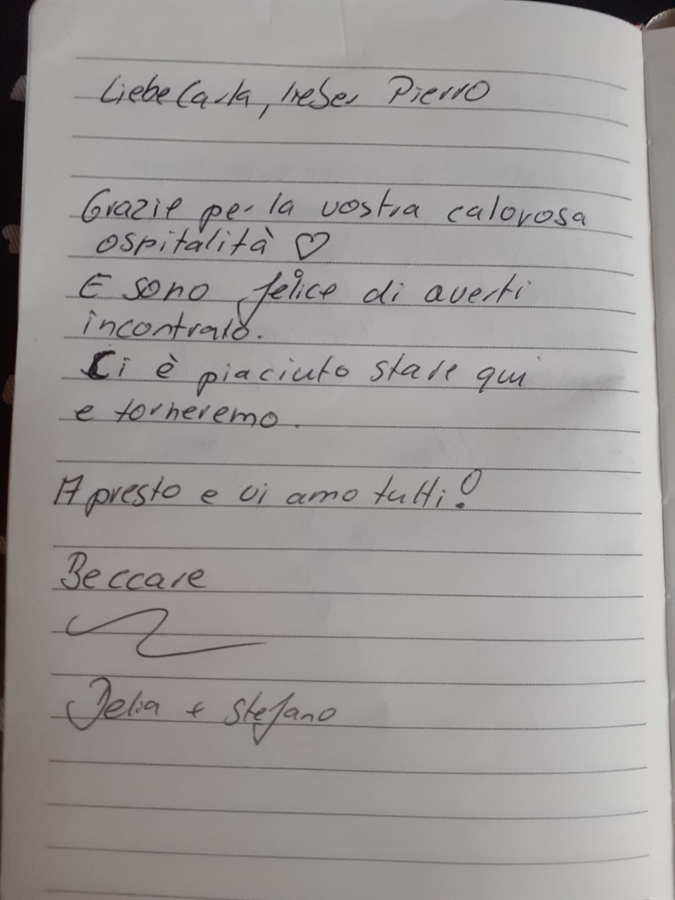 Liebe Carla, lieber Pierro
Grazie per la vostra calorosa
ospitalità ♡
E sono felice di averti
incontrato.
Ci è piaciuto stare qui
e torneremo.
A presto e vi amo tutti!
Beccare
Delia + Stefano